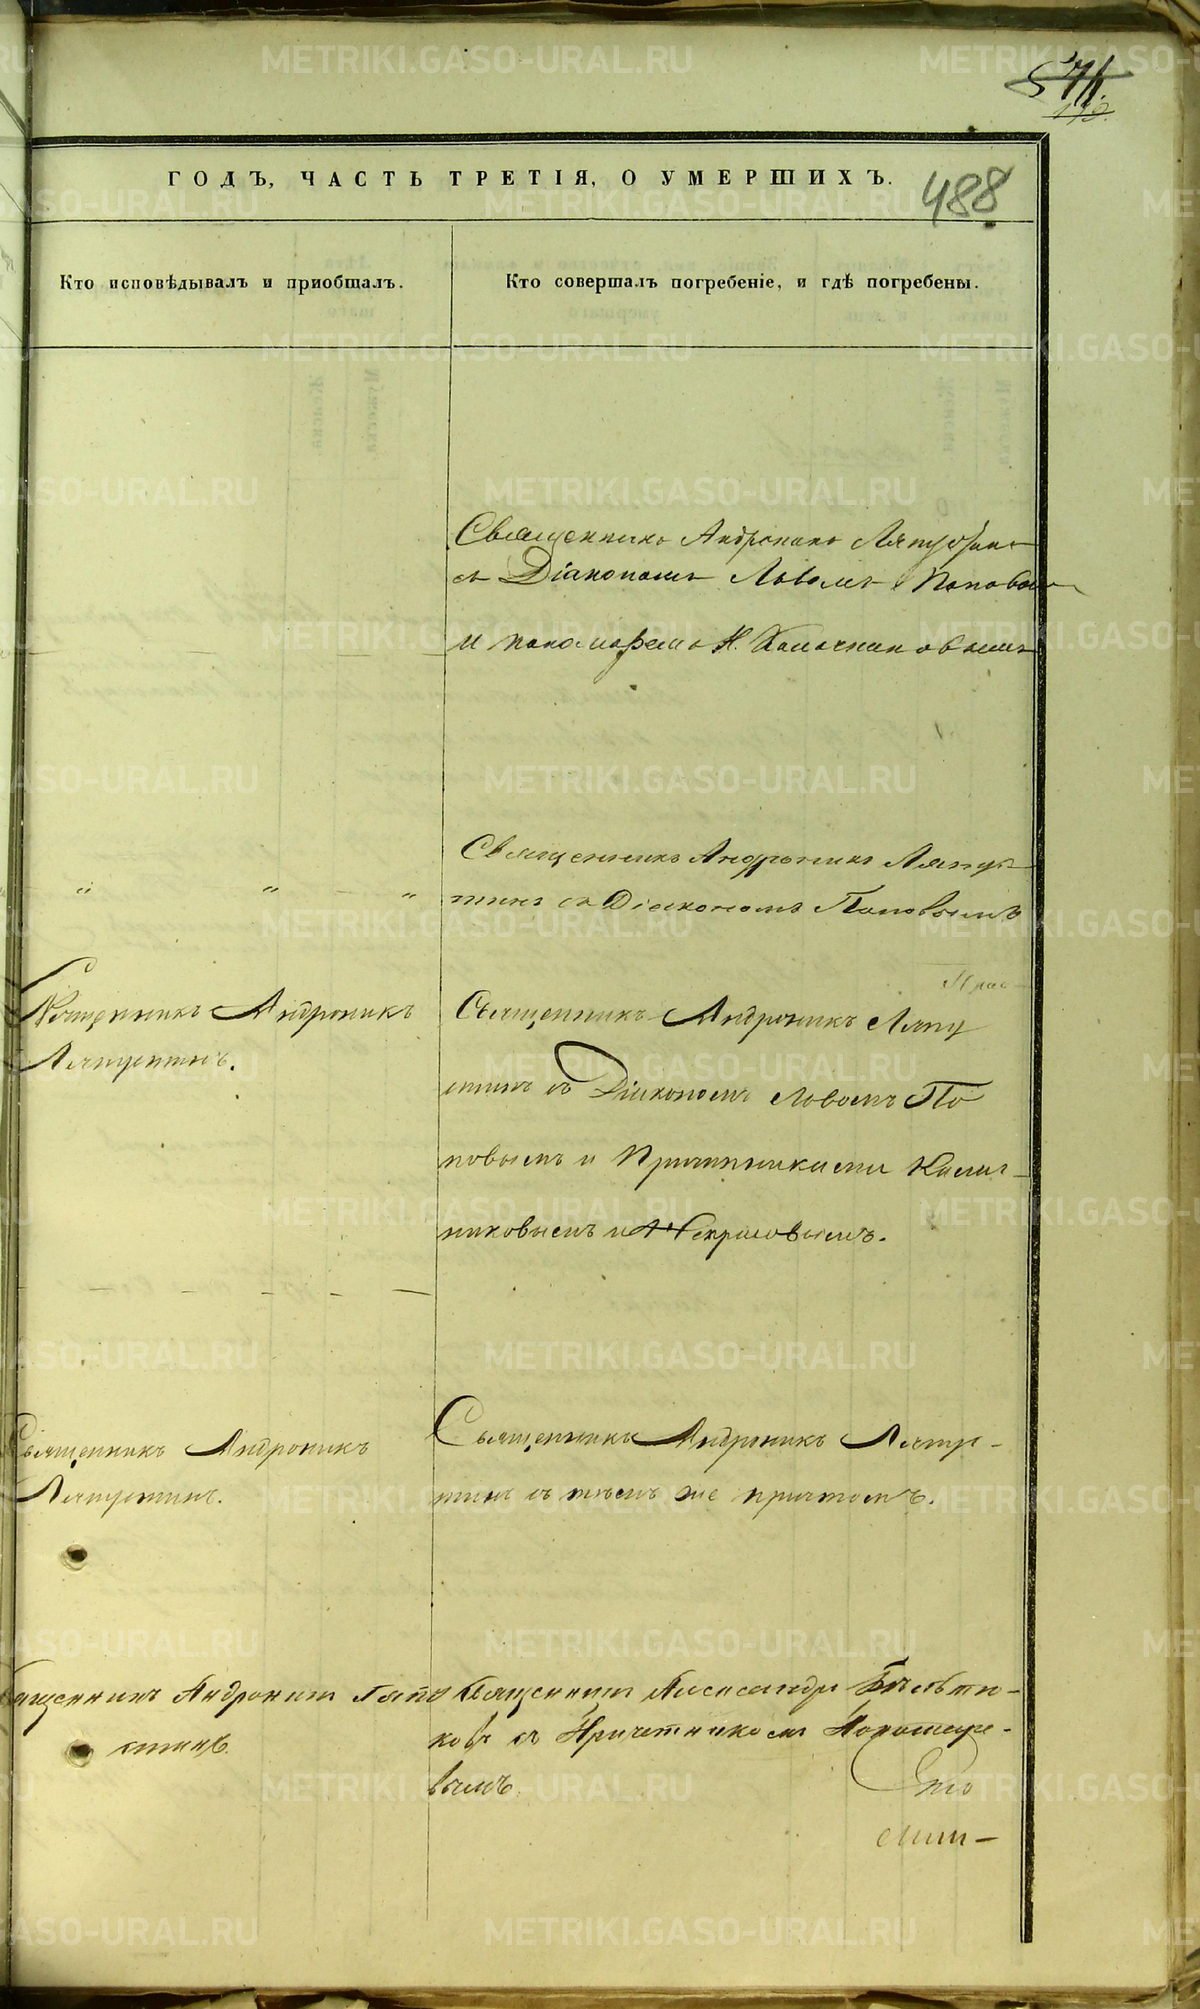 488
ГОДЪ, ЧАСТЬ ТРЕТІЯ, О УМЕРШИХЪ.
Кто исповѣдывалъ и приобщалъ.
Кто совершалъ погребеніе, и гдѣ погребены.
Священникъ Андроникъ Ляпустинъ
съ Діакономъ Львомъ Поповымъ
и пономаремъ Н.
Священникъ Андроникъ Ляпу
стинъ съ Діакономъ Поповымъ
Священникъ Андроникъ
Ляпустинъ.
Священникъ Андроникъ Ляпу
стинъ съ Діакономъ Львомъ По
повымъ и Причетниками
никовымъ и Некрасовымъ.
Священникъ Андроникъ
Ляпустинъ.
Священникъ Андроникъ Ляпу-
стинъ съ тѣмъ же причтомъ.
Священникъ Андроникъ Ляпу
стинъ.
Священникъ Александръ
ковъ съ Причетникомъ
вымъ.
METRIKI.GASO-URAL.RU